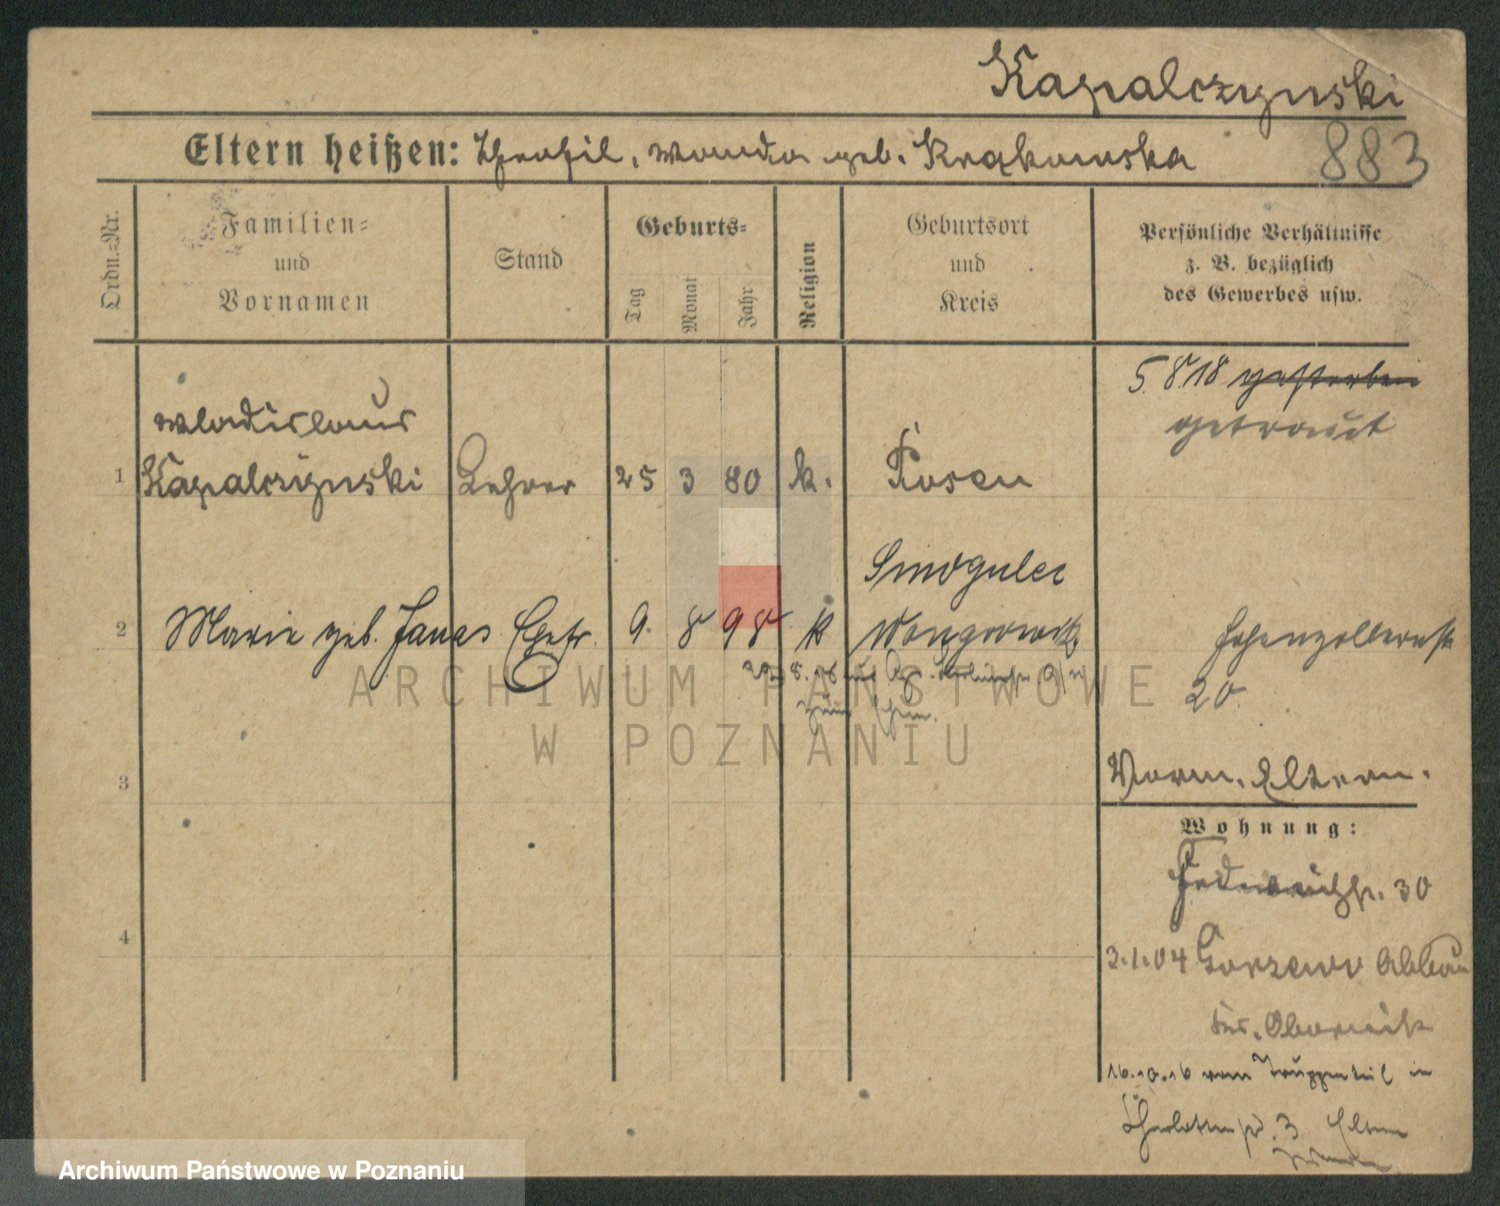 Kapalczynski
Eltern heißen: Theofil, Wanda geb. Krąkowska
883
Ordn.-Nr.
Familien-
und
Vornamen
Stand
Geburts-
Tag
Monat
Jahr
Religion
Geburtsort
und
Kreis
Persönliche Verhältnisse
z. B. bezüglich
des Gewerbes usw.
5. 8. 18 gestorben
getraut
Wladislaus
1 Kapalczynski Lehrer 25 3 80 k. Posen
Smogulec
2 Marie geb. Janas Ehefr. 9. 8 98 k Wongrowitz Hohenzollernstr
20.
3
Vorm. Eltern.
Wohnung:
30
4
3.1.04 Gorzewo Abbau
Kr. Obornik
16.10.16 vom Truppenteil in
Charlottenstr. 3 Eltern
ARCHIWUM PAŃSTWOWE
W POZNANIU
Archiwum Państwowe w Poznaniu